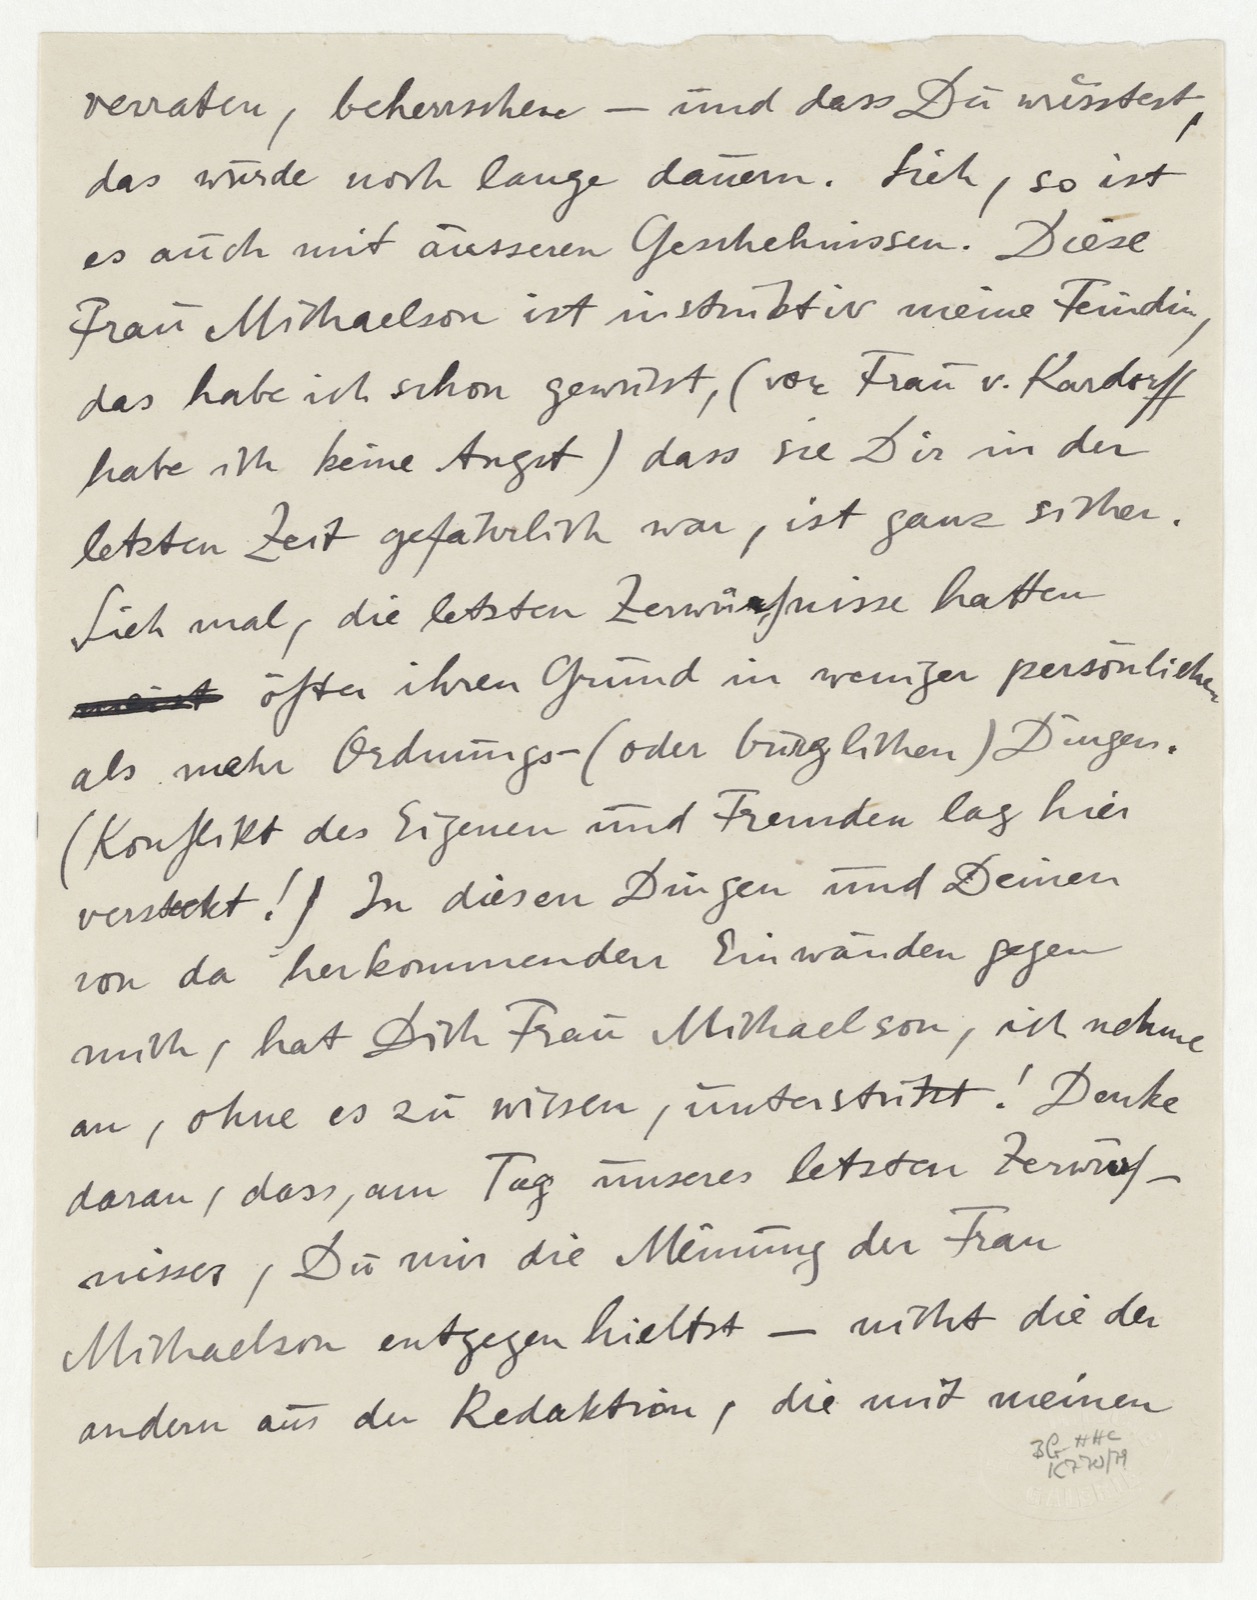 verraten, beherrschen — und dass Du wüsstest,
das würde noch lange dauern. Sieh, so ist
es auch mit äusseren Geschehnissen. Diese
Frau Michaelson ist instinktiv meine Feindin,
das habe ich schon gewusst, (vor Frau v. Kardorff
habe ich keine Angst) dass sie Dir in der
letzten Zeit gefährlich war, ist ganz sicher.
Sieh mal, die letzten Zerwürfnisse hatten
meist öfter ihren Grund in weniger persönlichen
als mehr Ordnungs-(oder bürglichen) Dingen.
(Konflikt des Eigenen und Fremden lag hier
versteckt!) In diesen Dingen und Deinen
von da herkommenden Einwänden gegen
mich, hat Dich Frau Michaelson, ich nehme
an, ohne es zu wissen, unterstützt! Denke
daran, dass, am Tag unseres letzten Zerwürf-
nisses, Du mir die Meinung der Frau
Michaelson entgegen hieltst — nicht die der
andern aus der Redaktion, die mit meinen
BG HHC
K 770/79